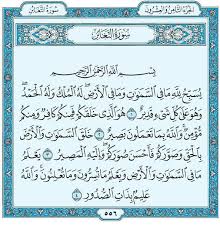 الجزء الثامن والعشرون
سورة التغابن
سُورَةُ التَّغَابُنِ
بِسْمِ اللَّهِ الرَّحْمَٰنِ الرَّحِيمِ
يُسَبِّحُ لِلَّهِ مَا فِي السَّمَٰوَٰتِ وَمَا فِي الْأَرْضِ ۖ لَهُ الْمُلْكُ وَلَهُ الْحَمْدُ ۖ
وَهُوَ عَلَىٰ كُلِّ شَيْءٍ قَدِيرٌ ١ هُوَ الَّذِي خَلَقَكُمْ فَمِنكُمْ كَافِرٌ وَمِنكُم
مُّؤْمِنٌ ۚ وَاللَّهُ بِمَا تَعْمَلُونَ بَصِيرٌ ٢ خَلَقَ السَّمَٰوَٰتِ وَالْأَرْضَ
بِالْحَقِّ وَصَوَّرَكُمْ فَأَحْسَنَ صُوَرَكُمْ ۖ وَإِلَيْهِ الْمَصِيرُ ٣ يَعْلَمُ
مَا فِي السَّمَٰوَٰتِ وَالْأَرْضِ وَيَعْلَمُ مَا تُسِرُّونَ وَمَا تُعْلِنُونَ ۚ وَاللَّهُ
عَلِيمٌ بِذَاتِ الصُّدُورِ ٤
٥٥٦